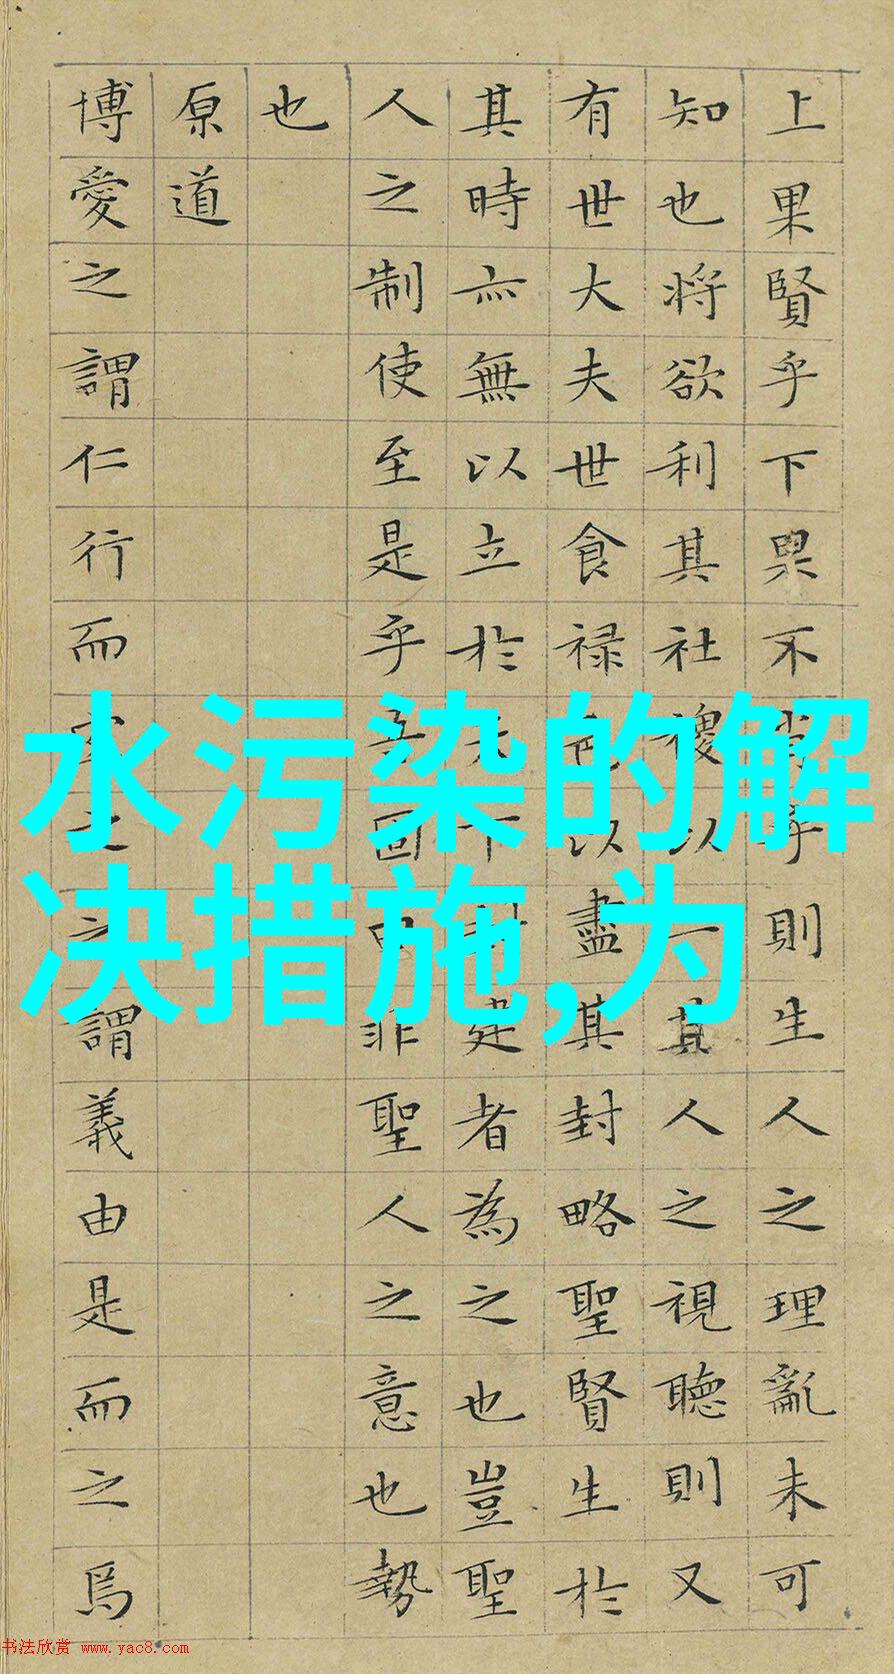 上果賢乎下果不肖乎則生人之理亂未可
知也將欲利其社稷以一其人之視聽則又
有世大夫世食禄邑以盡其封略聖賢生於
其時亦無以立於天下封建者為之也豈聖
人之制使至是乎吾固曰非聖人之意也勢
也
原道
博愛之謂仁行而宜之之謂義由是而之焉
水污染的解
决措施,为
书法欣赏 www.yac8.com